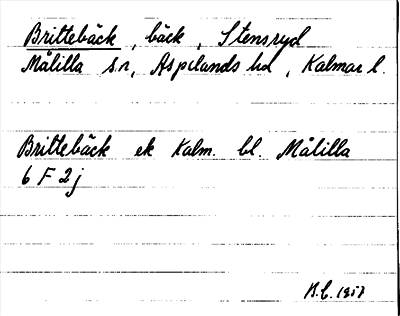 Brittebäck, bäck, Stensryd
Målilla sn, Aspelands hd, Kalmar l.
Brittebäck ek Kalm. bl. Målilla
6 F 2j